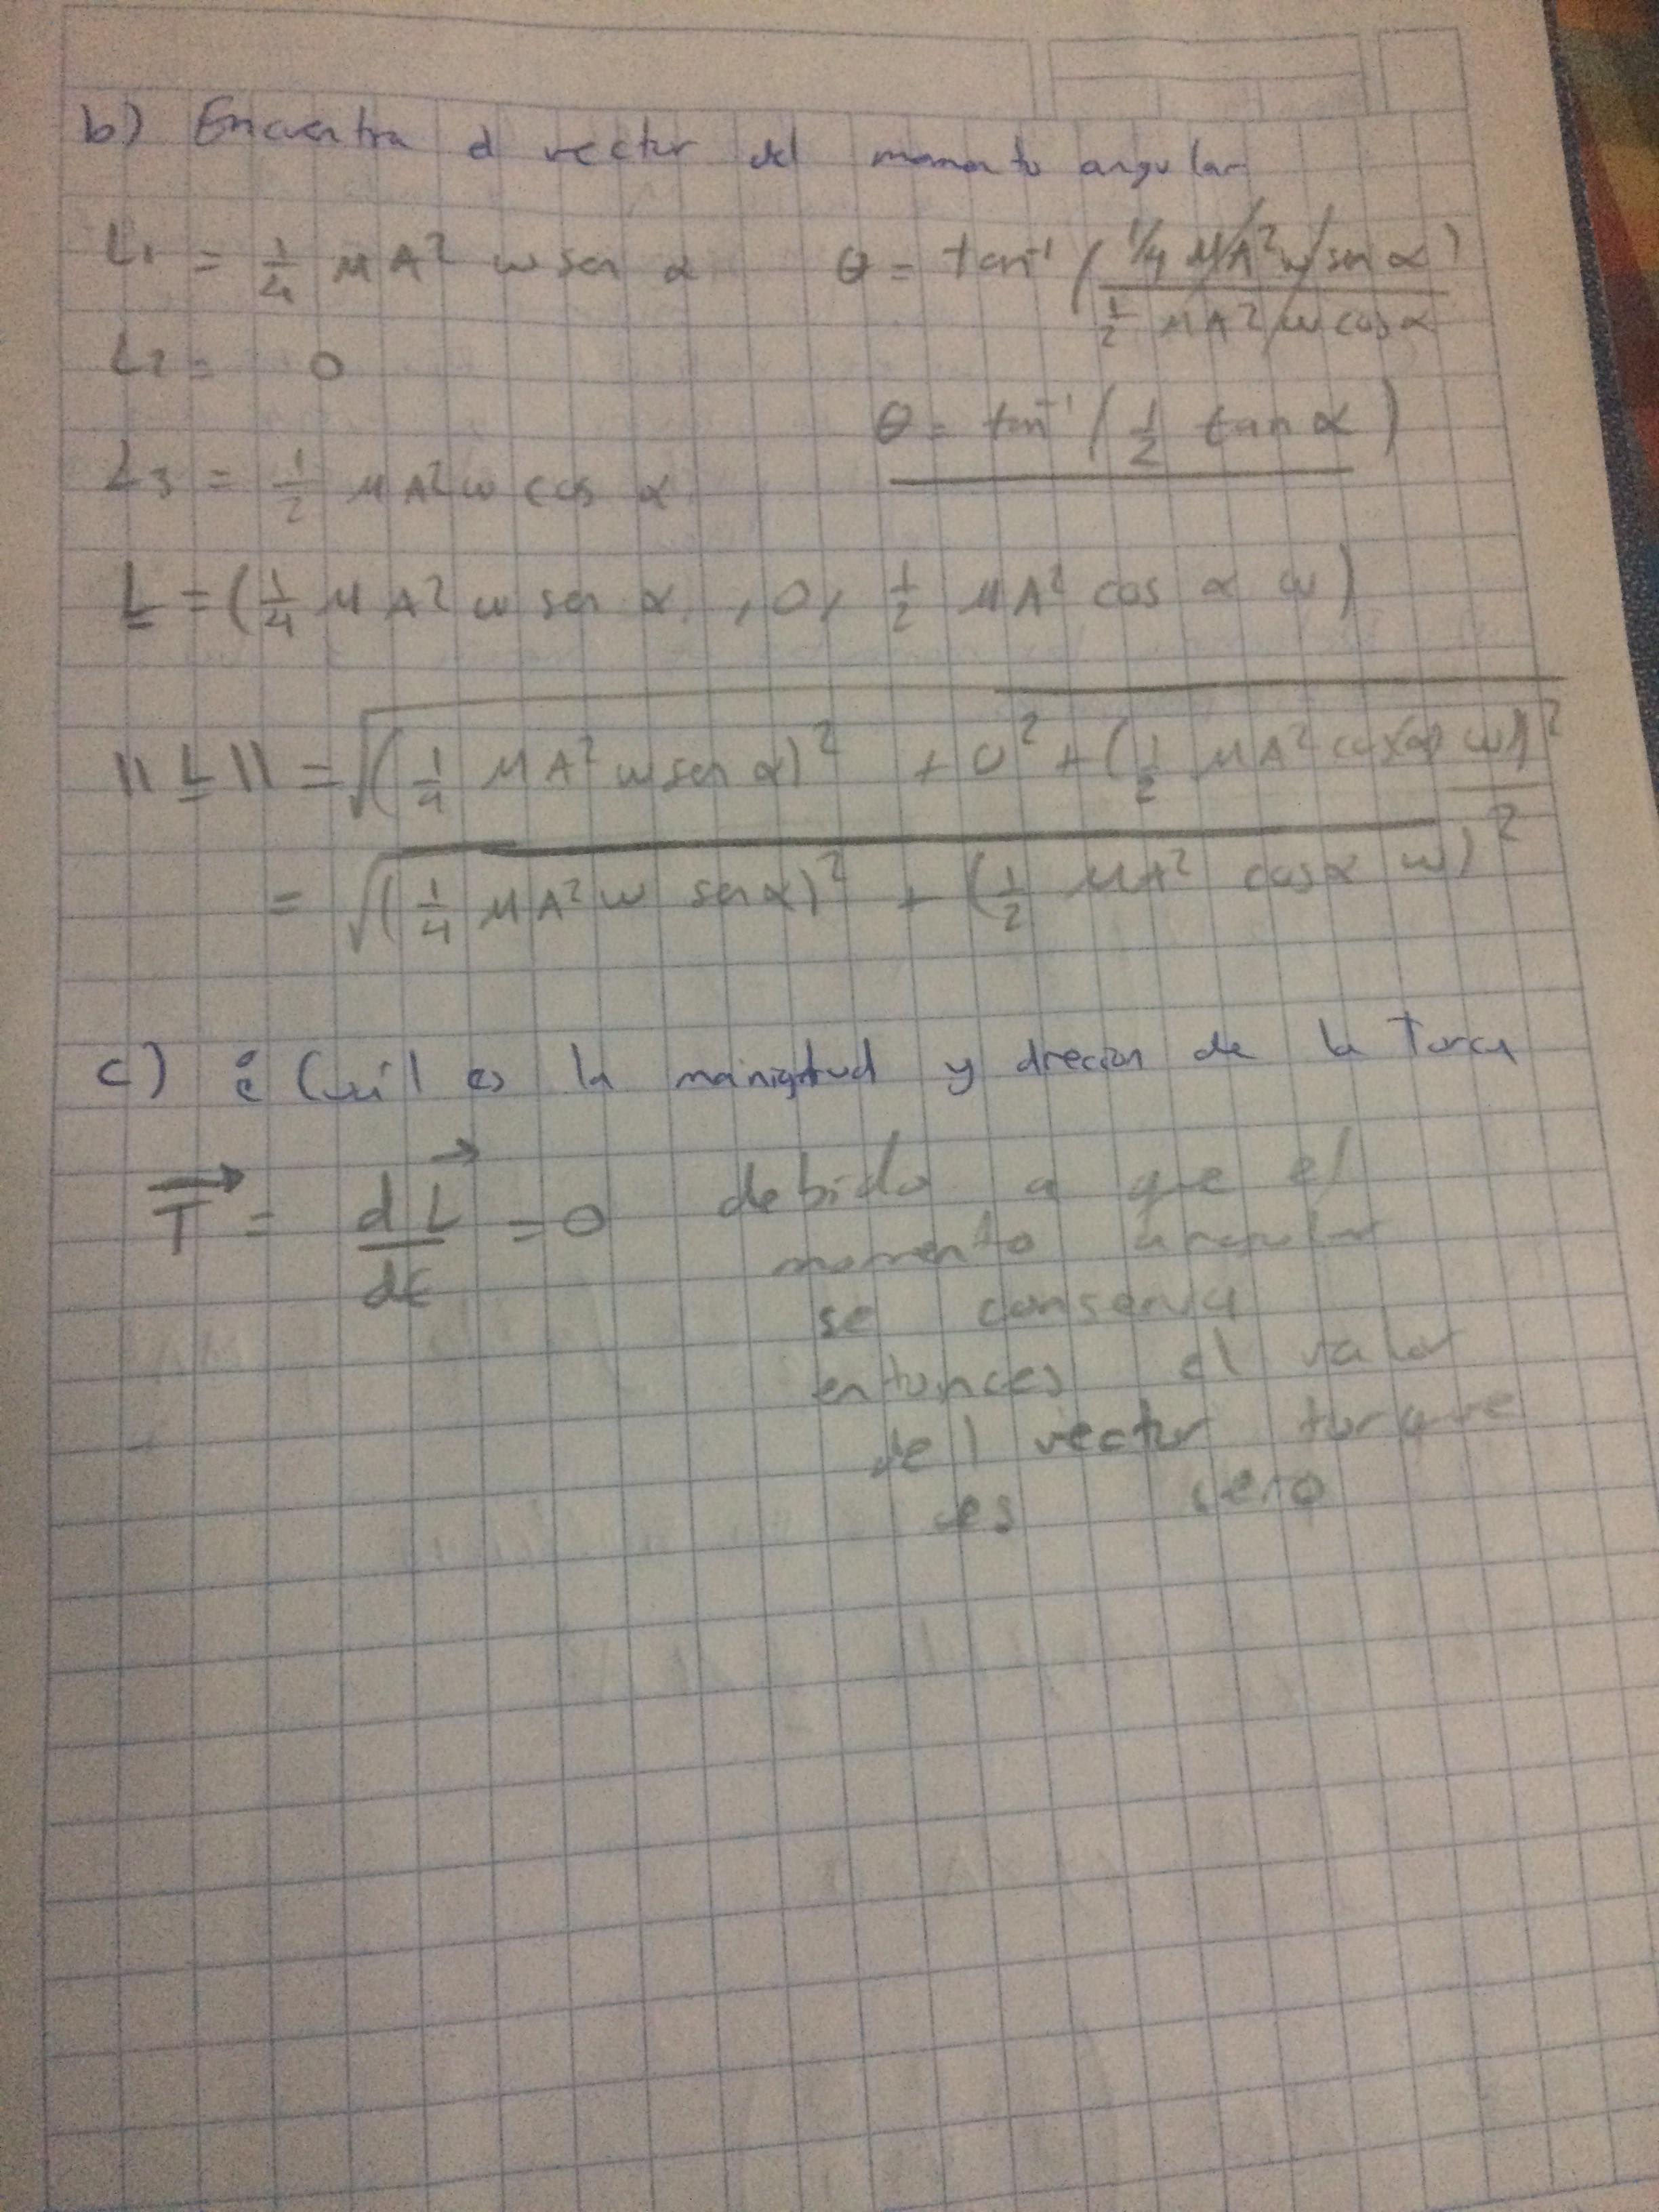 b) Encuentra el vector del momento angular
L₁ = 1/4 MA² w sen α
θ = tan⁻¹ ( 1/4 MA² w sen α / 1/2 MA² w cos α )
L₂ = 0
θ = tan⁻¹ ( 1/2 tan α )
L₃ = 1/2 MA² w cos α
L = ( 1/4 MA² w sen α , 0, 1/2 MA² cos α w )
|| L || = √( 1/4 MA² w sen α )² + 0² + ( 1/2 MA² cos(α) w )²
= √( 1/4 MA² w sen α )² + ( 1/2 MA² cos α w )²
c) ¿Cuál es la manigtud y direcion de la Torca
T = dL/dt = 0 debido a que el
momento angular
se conserva
entonces el valor
del vector torque
es cero